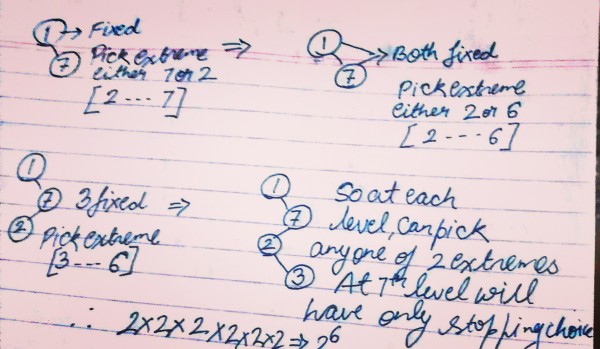 1 → Fixed
7 Pick extreme ⇒
either 7 or 2
[2 --- 7]
1 → Both fixed
7
Pick extreme
either 2 or 6
[2 --- 6]
1
7 3 fixed ⇒
2 Pick extreme
[3 --- 6]
1 So at each
7 level, can pick
2 any one of 2 extremes
3 At 7th level will
have only stopping choice
∴ 2×2×2×2×2×2 ⇒ 2^6